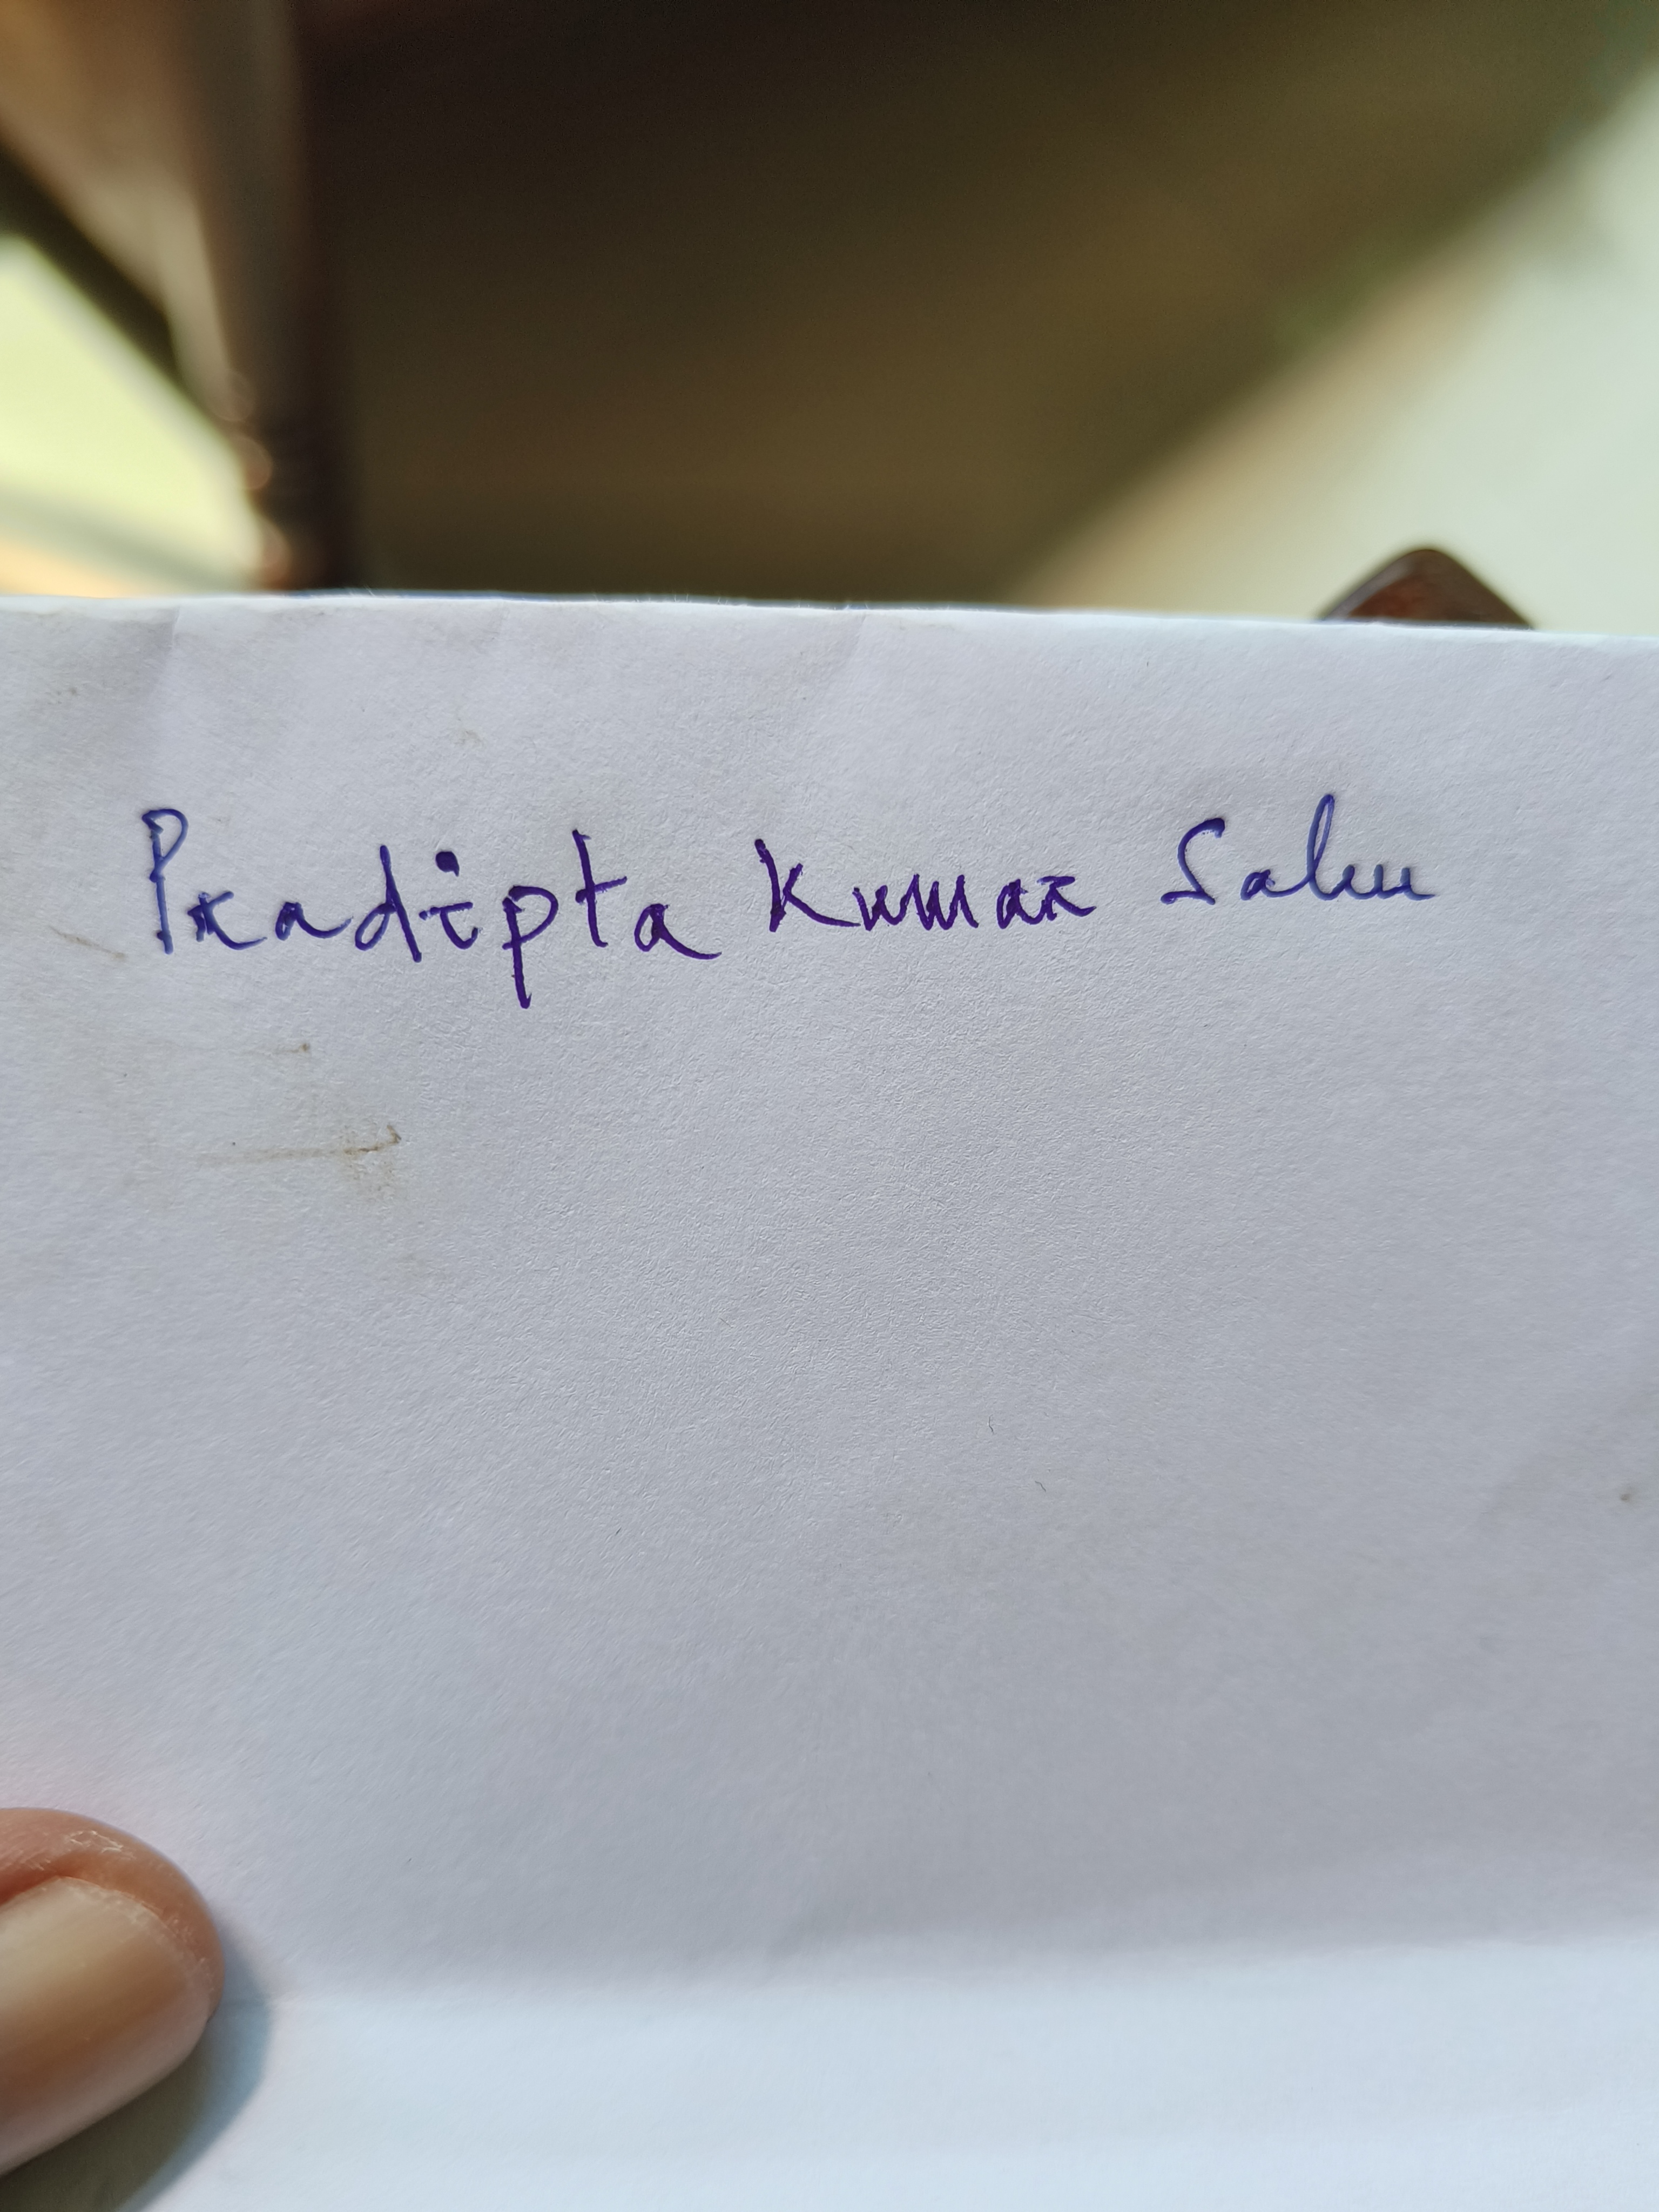 Pradipta Kumar Sahu